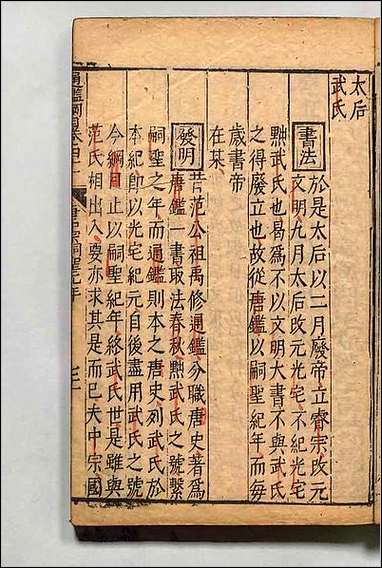 太后
武氏
書法
於是太后以二月廢帝立睿宗改元
文明九月太后改元光宅不紀光宅
黜武氏也曷為不以文明大書不與武氏
之得廢立也故從唐鑑以嗣聖紀年而每
歲書帝
在某
發明
昔范公祖禹修通鑑分職唐史著為
唐鑑一書取法春秋黜武氏之號繫
嗣聖之年而通鑑則本之唐史列武氏於
本紀即以光宅紀元自後盡用武氏之號
今綱目止以嗣聖紀年終武氏世是雖與
范氏相出入要亦求其是而已夫中宗國
通鑑綱目卷四十一